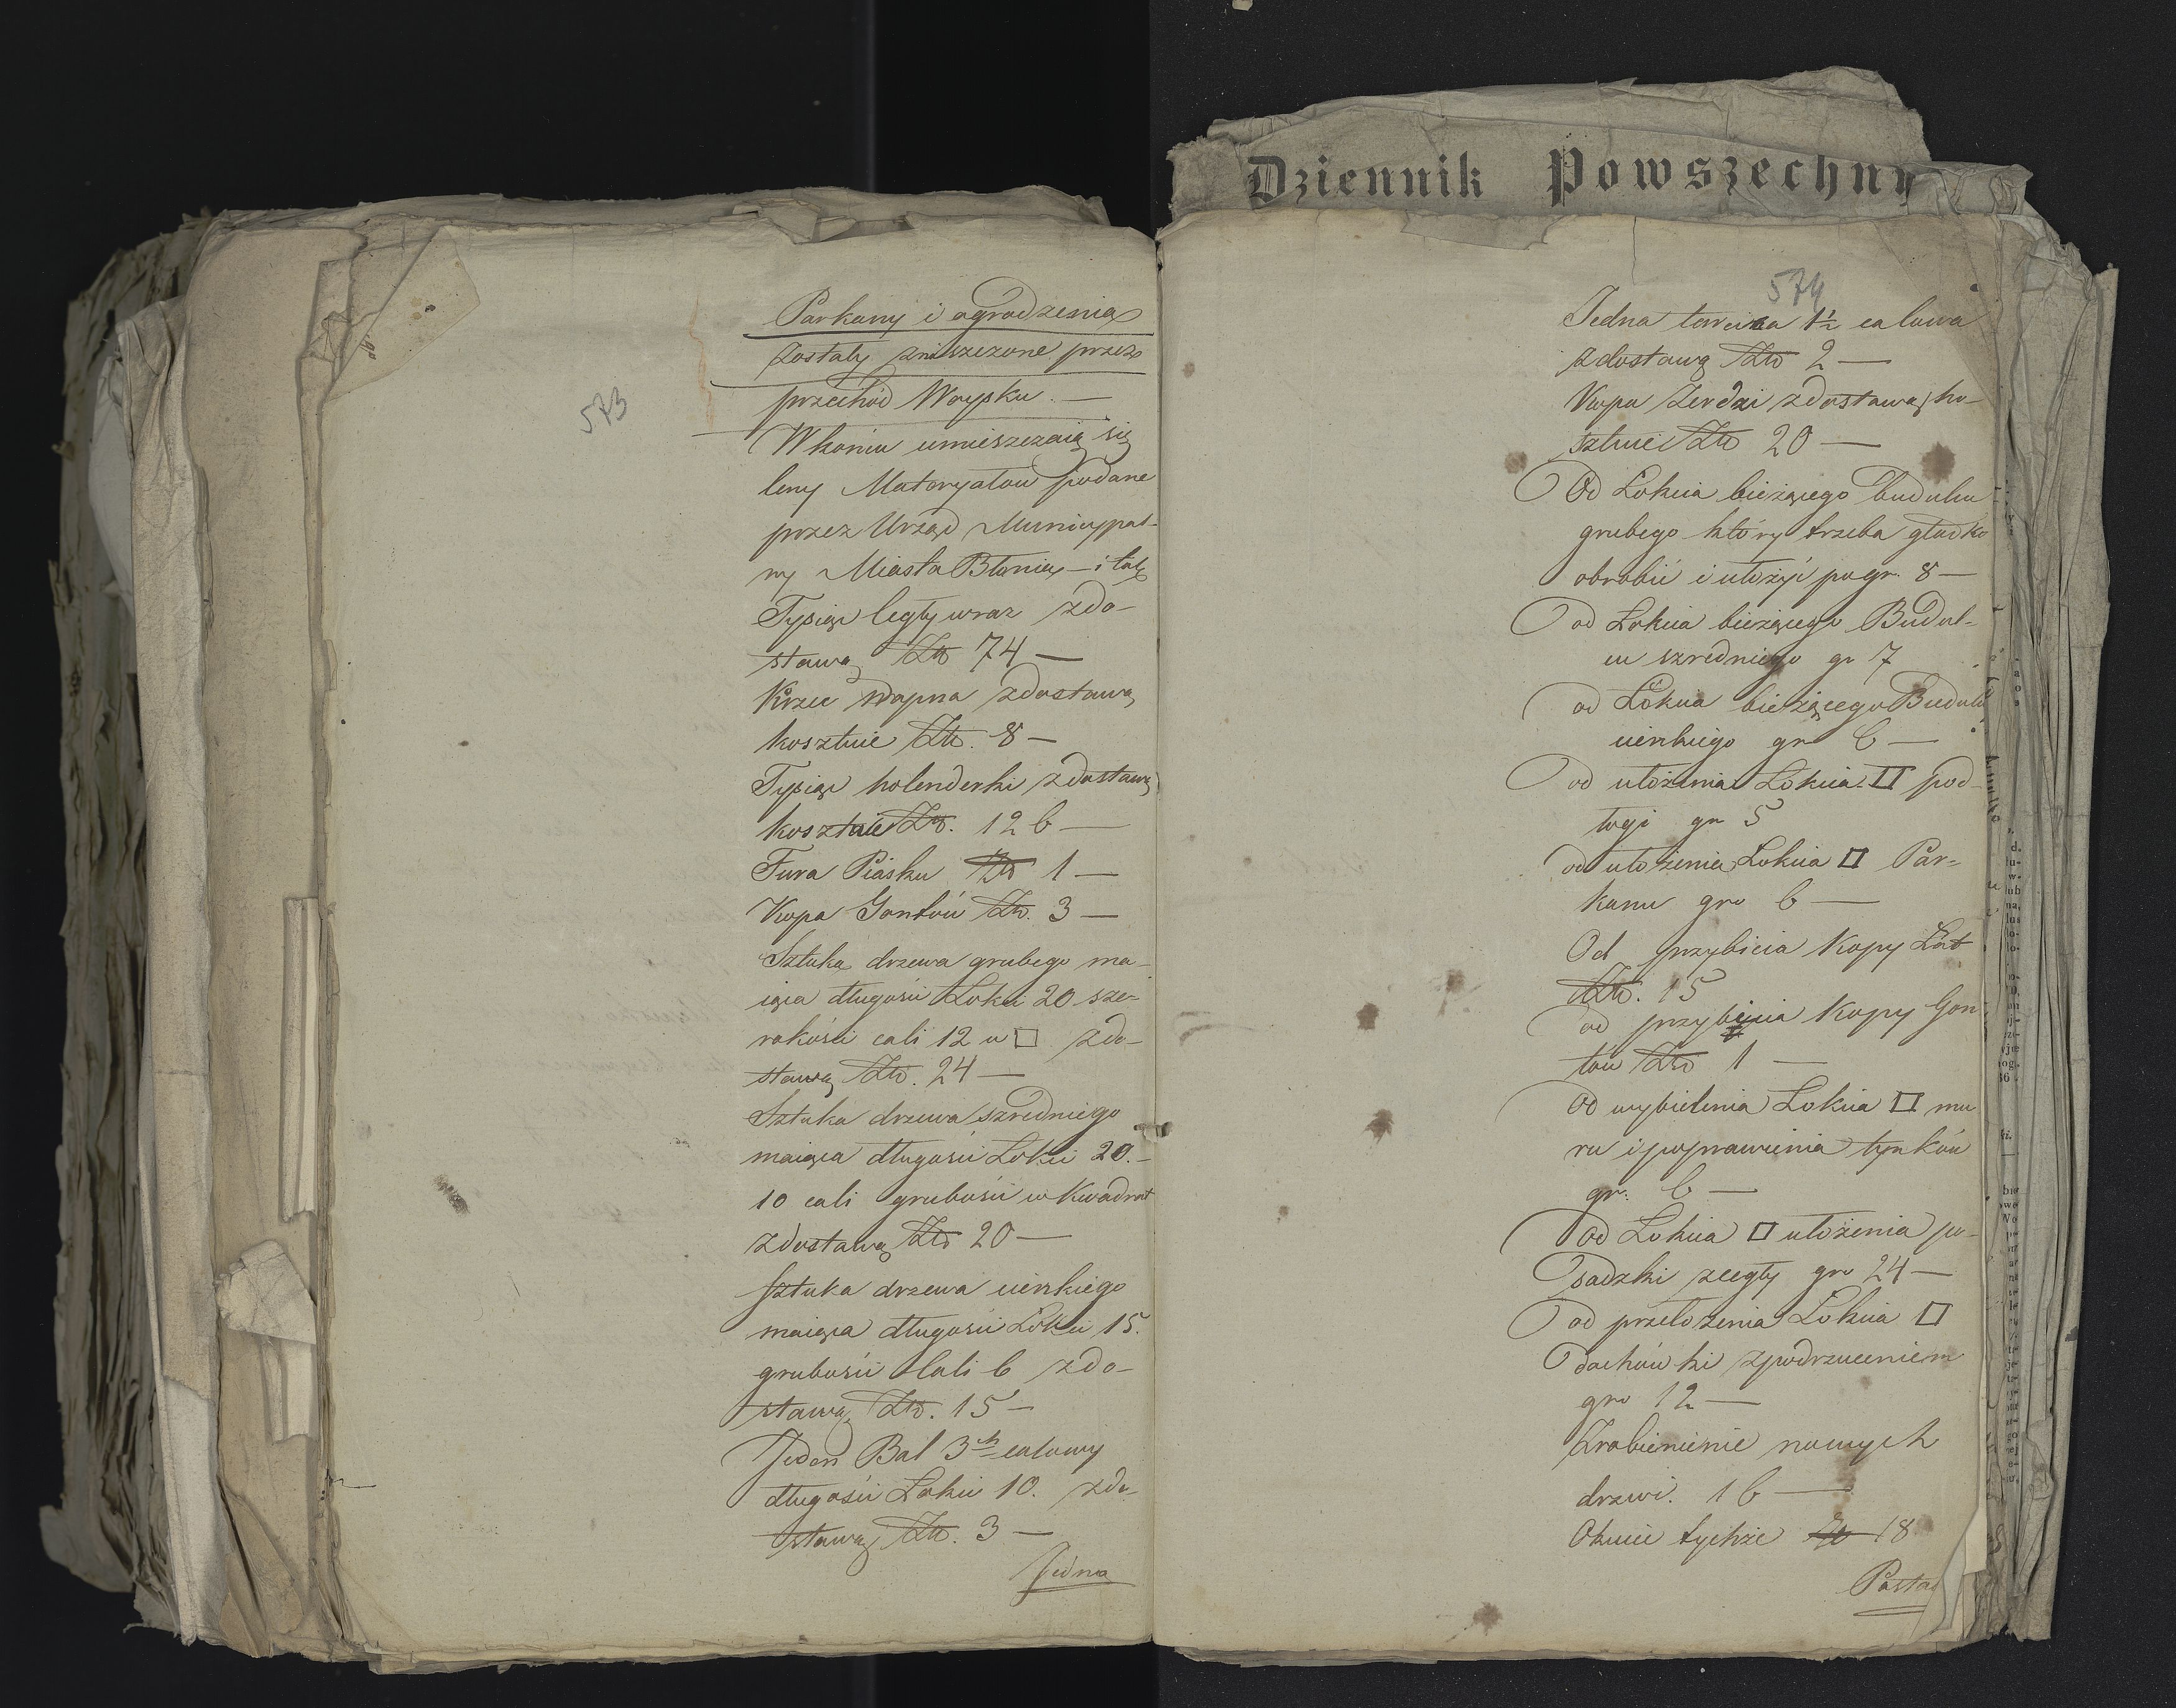 573
Parkany i ogrodzenia
zostały zniszczone przez
przechód Woysku. —
W końcu umieszczaią się
Ceny Materyałow podane
przez Urząd Municypal-
ny Miasta Błonia — i tak
Tysiąc Cegły wraz z do-
stawą Złp 74 —
Korzec Wapna z dostawą
kosztuie Złp. 8 —
Tysiąc holenderki z dostawą
kosztuie Złp. 126 —
Fura Piasku Złp 1 —
Kopa Gontów Złp. 3 —
Sztuka drzewa grubego ma-
iąca długości Łokci 20 sze-
rokości cali 12 w □ z do-
stawą Złp. 24 —
Sztuka drzewa szredniego
maiąca długości Łokci 20. —
10 cali grubości w Kwadrat
z dostawą Złp 20 —
Sztuka drzewa cienkiego
maiąca długości Łokci 15.
grubości Cali 6 z do-
stawą Złp. 15 —
Jeden Bal 3ch calowy
długości Łokci 10. z do-
stawą Złp. 3 —
Jedna
Dziennik Powszechny
574
Jedna tarcica 1½ calowa
z dostawą Złp 2 —
Kopa Zerdzi z dostawą ko-
sztuie Złp 20 —
Od Łokcia bieżącego budulcu
grubego który trzeba gładko
obrobić i ułożyć po gr. 8 —
od Łokcia bieżącego Budul-
cu szredniego gr 7
od Łokcia bieżącego Budulcu
cienkiego gr 6 —
od ułożenia Łokcia □ pod-
łogi gr 5
od ułożenia Łokcia □ Par-
kanu gro 6 —
Od przybicia Kopy Łat
Złp. 15
od przybicia Kopy Gon-
tów Złp 1 —
Od wybielenia Łokcia □ mu
ru i poprawienia tynków
gr. 6 —
Od Łokcia □ ułożenia po-
sadzki z cegły gro 24 —
od przełożenia Łokcia □
dachówki z podrzuceniem
gro 12 —
Zrobienienie nowych
drzwi. 16 —
Okucie tychże Złp 18